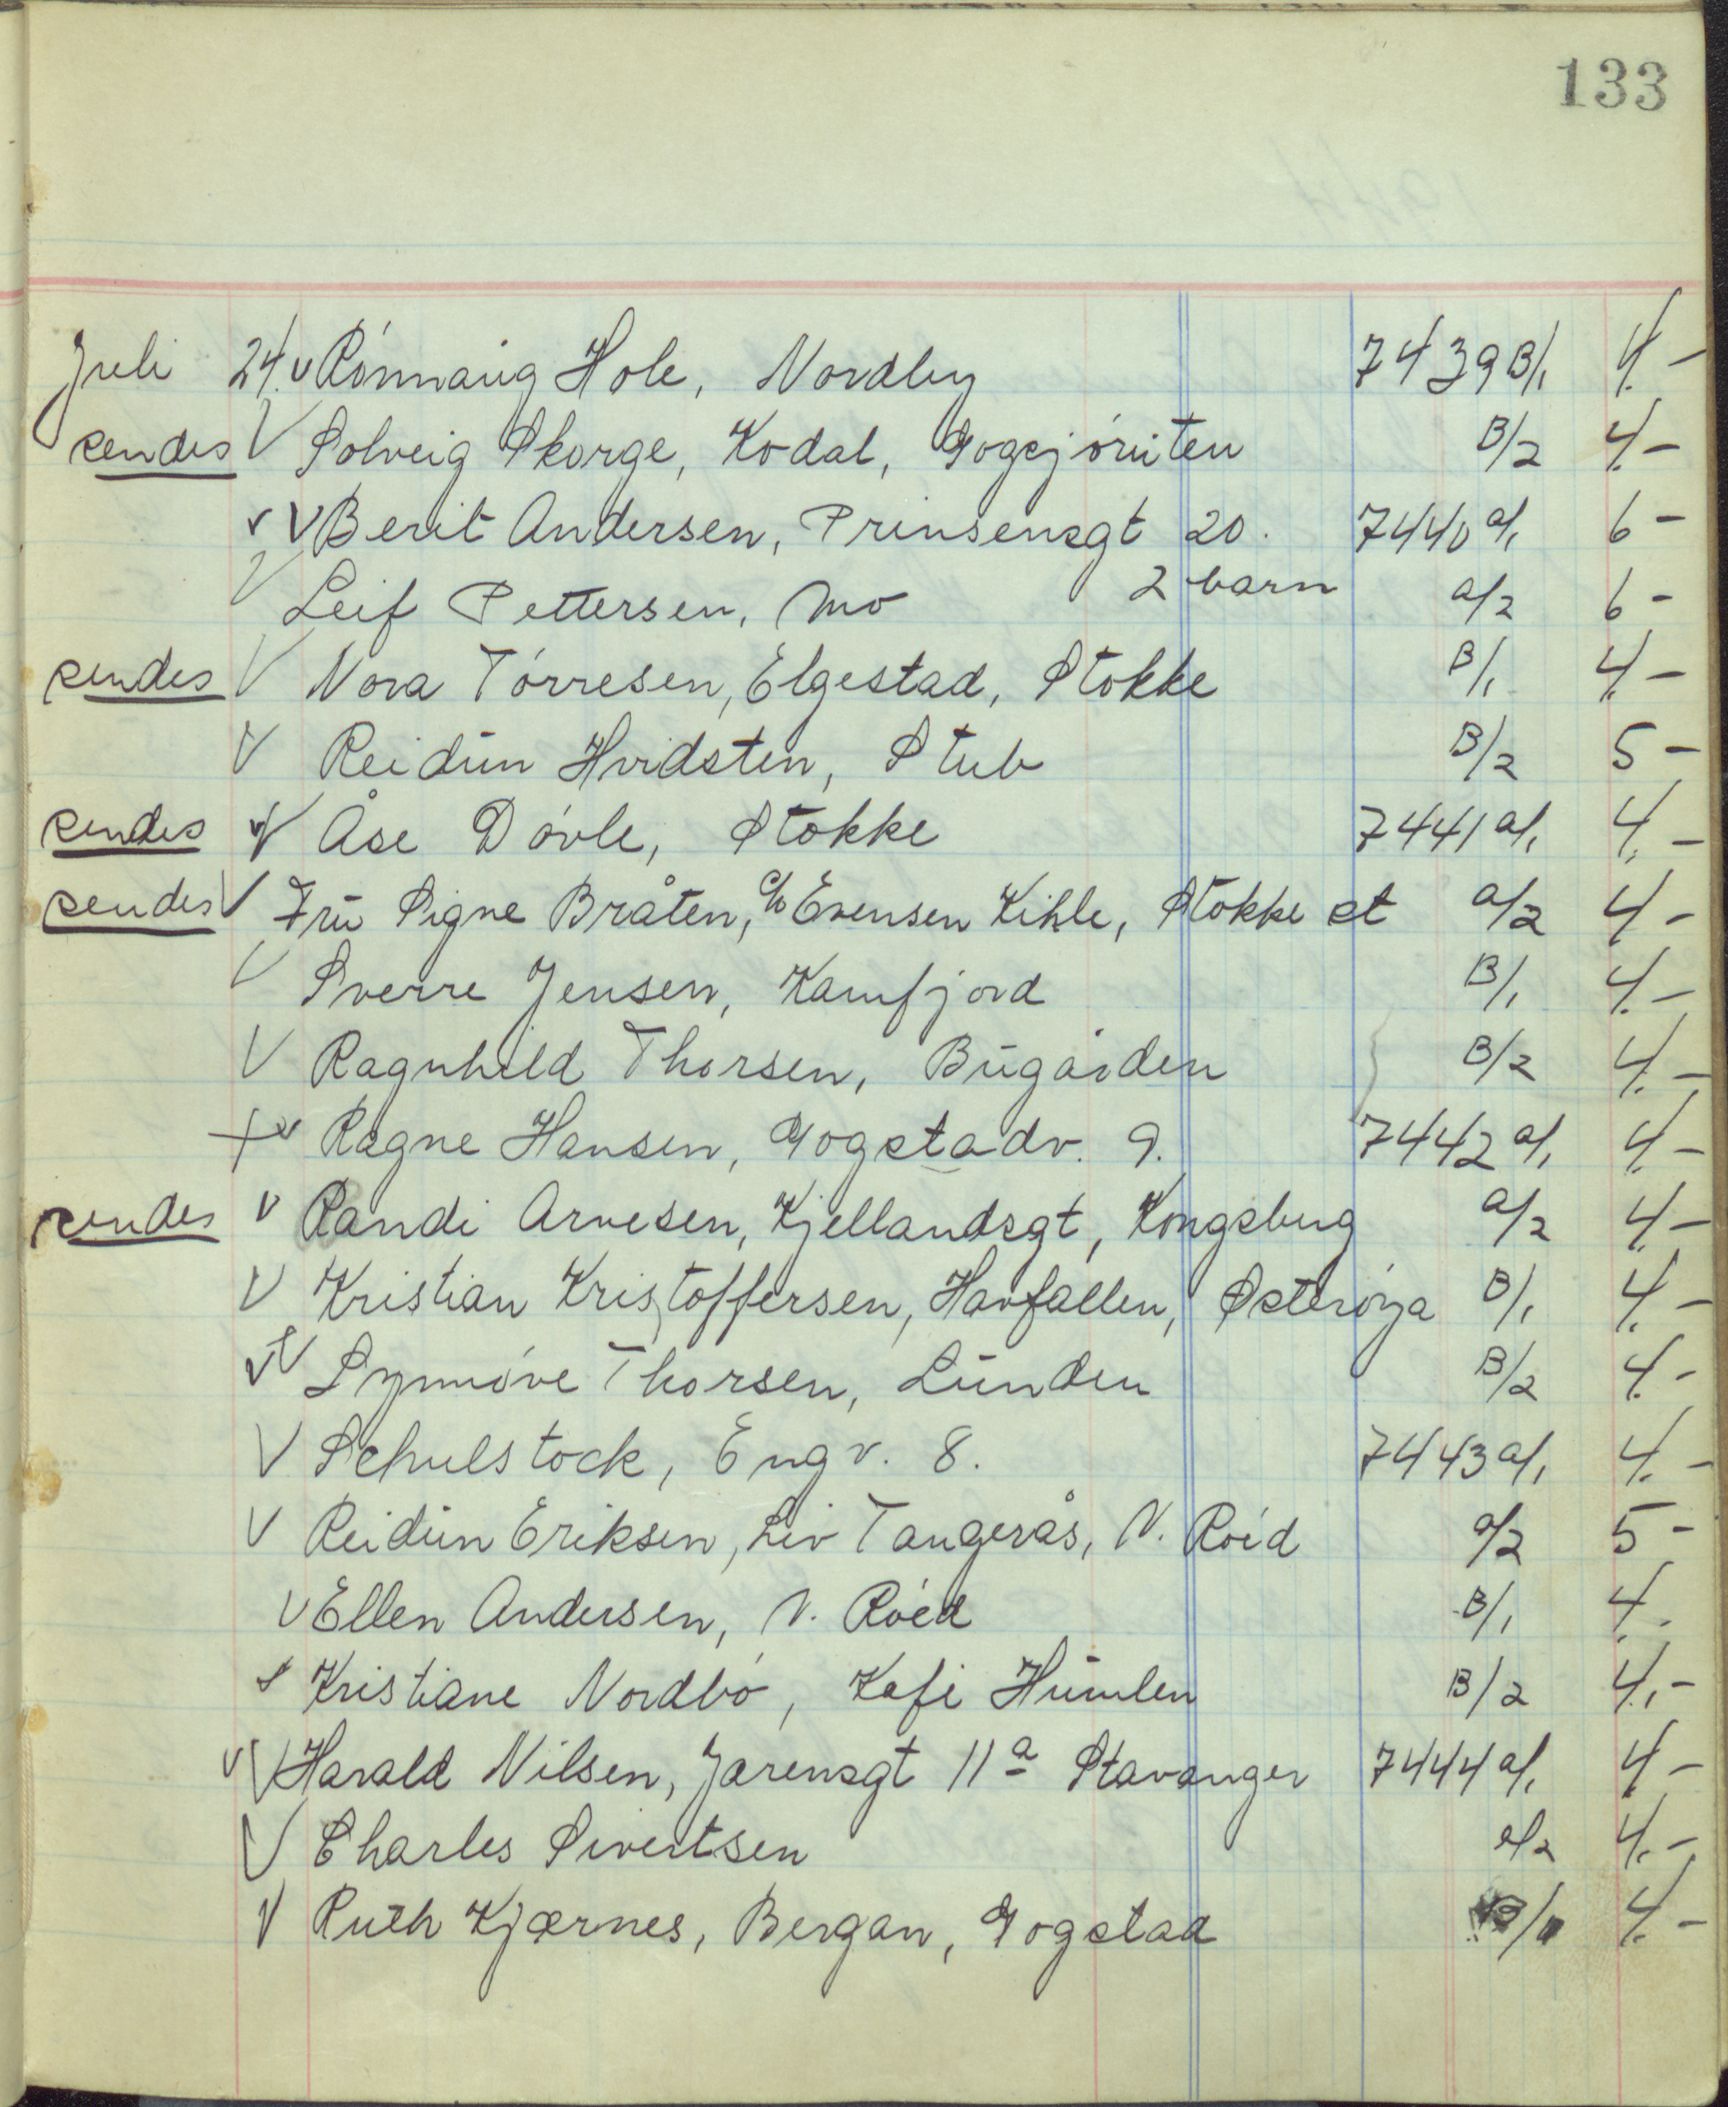 133
Juli 24. v Rønnaug Hole, Nordby 7439 B/1 4.-
sendes V Solveig Skorge, Kodal, Gogsjøruten B/2 4.-
v V Berit Andersen, Prinsensgt 20. 7440 a/1 6-
V Leif Pettersen, Mo 2 barn a/2 6-
sendes V Nora Tørresen, Elgestad, Stokke B/1 4.-
V Reidun Hvidsten, Stub B/2 5-
sendes V Åse Døvle, Stokke 7441 a/1 4.-
sendes V Fru Signe Bråten, c/o Evensen Kihle, Stokke st a/2 4.-
V Sverre Jensen, Kamfjord B/1 4.-
V Ragnhild Thorsen, Bugården B/2 4.-
+v Ragne Hansen, Gogstadv. 9. 7442 a/1 4.-
sendes V Randi Arvesen, Kjellandsgt, Kongsberg a/2 4.-
V Kristian Kristoffersen, Havfallen, Østerøya B/1 4.-
V Synnøve Thorsen, Lunden B/2 4.-
V Schulstock, Engv. 8. 7443 a/1 4.-
V Reidun Eriksen, Liv Tangerås, N. Rød a/2 5-
V Ellen Andersen, N. Rød B/1 4.
Kristiane Nordbø, Kafe Humlen B/2 4.-
v V Harald Nilsen, Jærensgt 11a Stavanger 7444 a/1 4.-
V Charles Sivertsen a/2 4.-
V Ruth Kjærnes, Bergan, Gogstad B/1 4.-